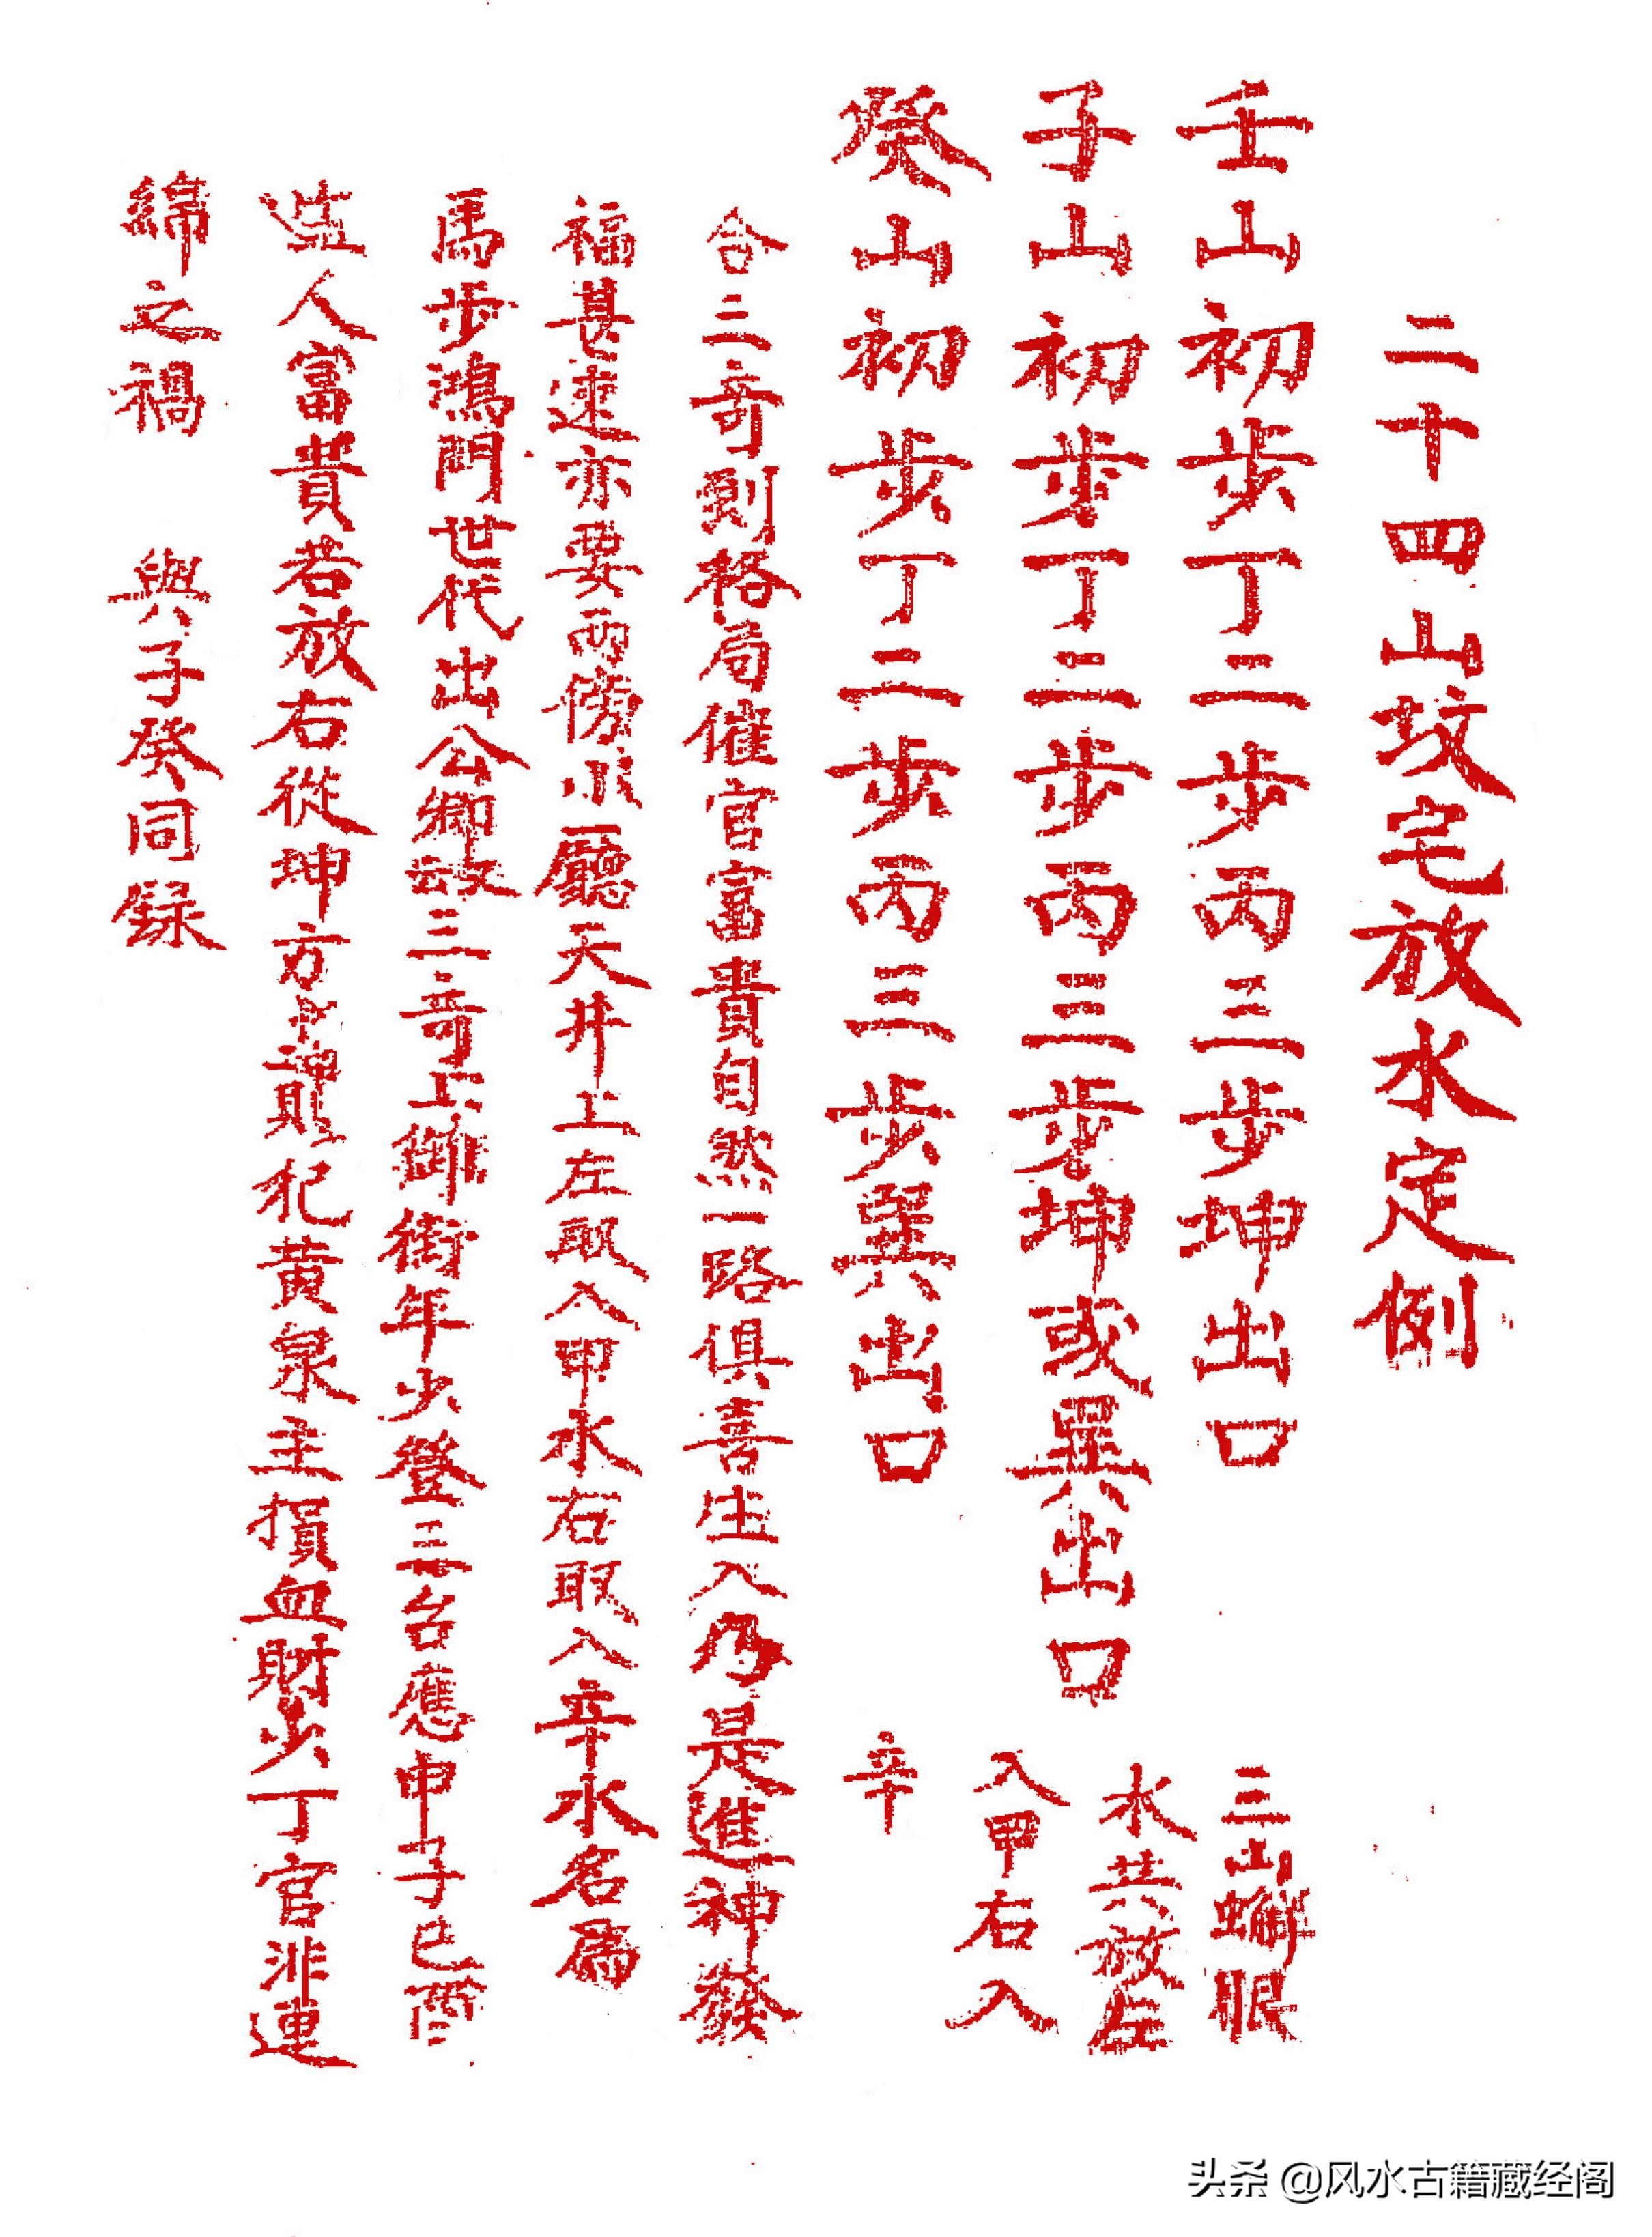 二十四山坟宅放水定例
壬山初步丁二步丙三步坤出口
子山初步丁二步丙三步坤或巽出口
癸山初步丁二步丙三步巽出口
三山蝌眼
水共放左
入甲右入
辛
合三奇到格局催官富貴自然一路俱喜生入乃是進神發
福甚速亦要两傍小廳天井上左取入甲水右取入辛水名爲
馬步鴻門世代出公卿故三奇上御街年少登三台應申子巳酉
生人富貴若放右從坤方中神則犯黄泉主損血財少丁官非連
綿之禍 與子癸同録
头条 @风水古籍藏经阁